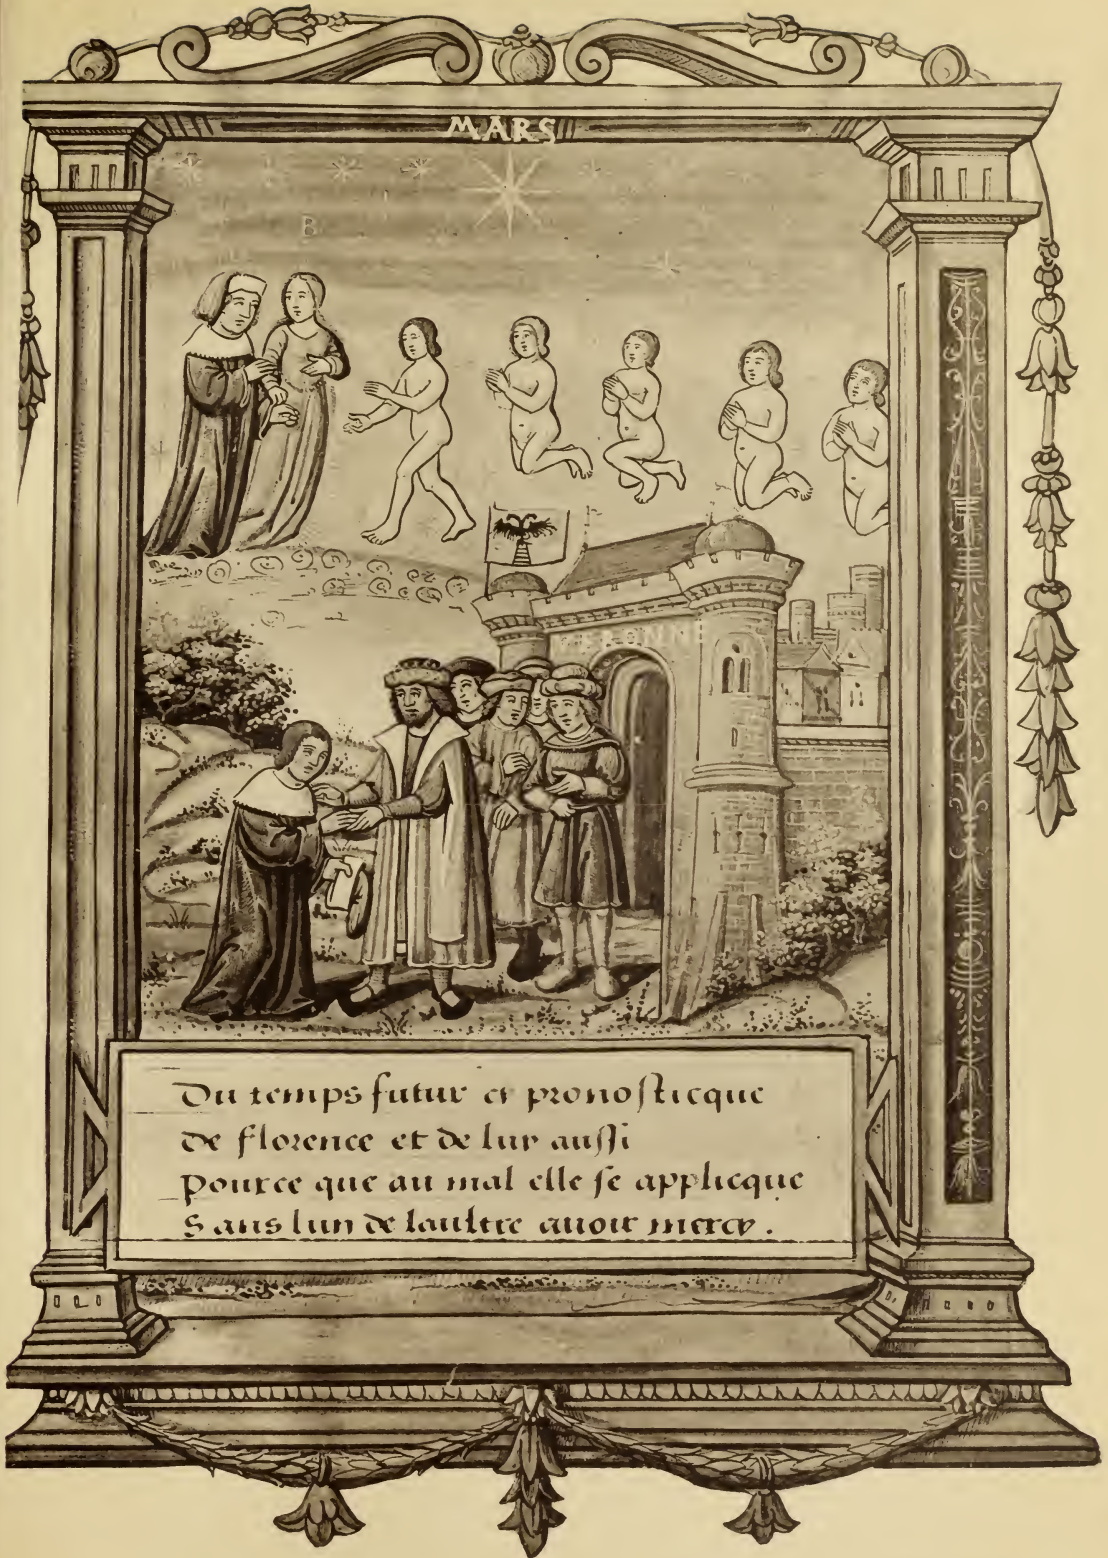 MARS
B
VERONNE
Du temps futur et pronosticque
de florence et de luy aussi
pource que au mal elle se applicque
Sans lun de laultre avoir mercy.